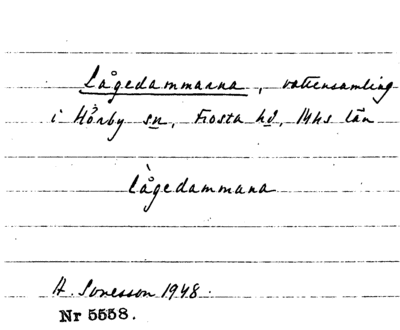 Lågedammarna, vattensamling
i Hörby sn, Frosta hd, Mhs län
lågedammana
H. Sonesson 1948.
Nr 5558.